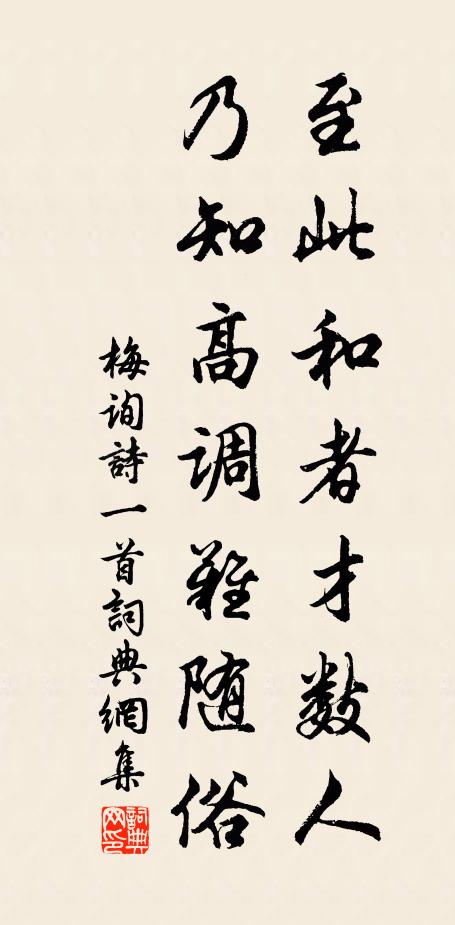 至此和者才数人
乃知高调难随俗
梅询詩一首詞典網集
詞典
网印